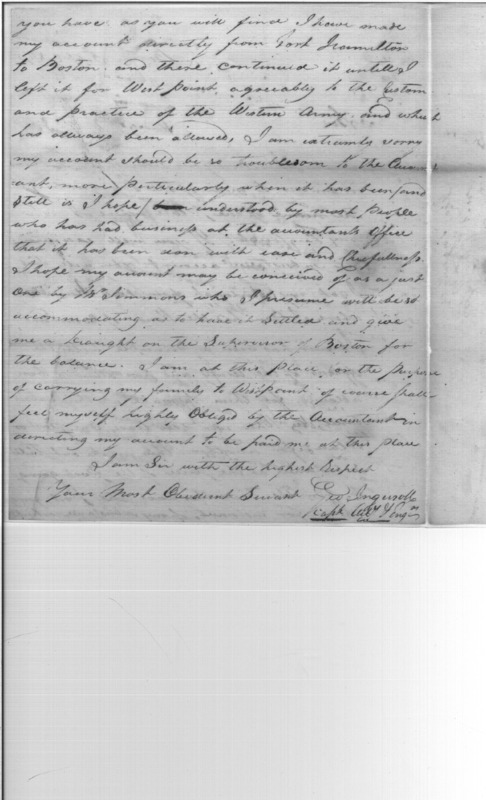 you have. as you will find I have made
my account directly from Fort Hamilton
to Boston. and there continued it untill I
left it for West Point, agreeably to the custom
and practice of the Western Army. and what
has allways been allowed, I am extremly sorry
my account should be so troublesom to the Account
ant, more perticularly when it has been (and
still is I hope) understood by most People
who has had business at the accountants Office
that it has been don with ease and
I hope my account may be conceived of as a just
one by Mr Simmons who I presume will be so
accommodating as to have it Settled and give
me a Draught on the Supervisor of Boston for
the balance. I am at this place, on the Purpose
of carrying my family to West Point of course shall
feel myself highly Obliged by the Accountant in
directing my account to be paid me at this place
I am Sir with the highest Respect
Your Most Obedient Servant Geo Ingersoll
Capt